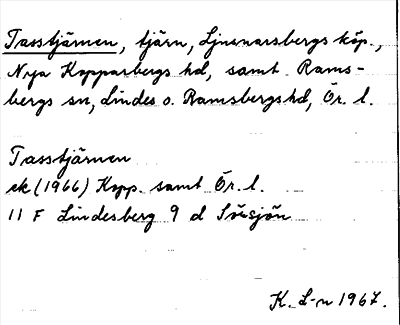 Tasstjärnen, tjärn, Ljusnarsbergs köp.,
Nya Kopparbergs hd, samt Rams-
bergs sn, Lindes o. Ramsbergs hd, Ör. l.
Tasstjärnen
ek (1966) Kopp. samt Ör. l.
11 F Lindesberg 9 d Sörsjön
K. L-n 1967.